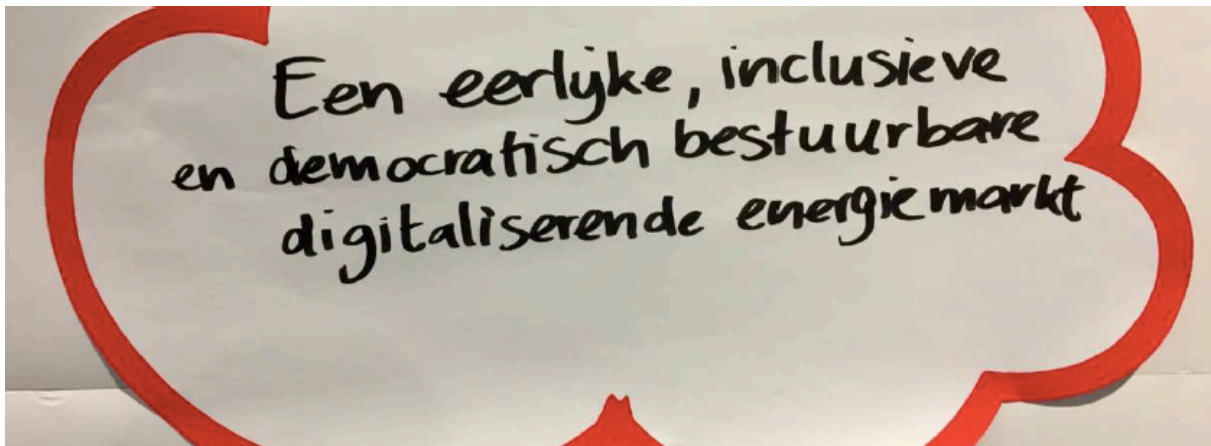 Een eerlijke, inclusieve
en democratisch bestuurbare
digitaliserende energiemarkt